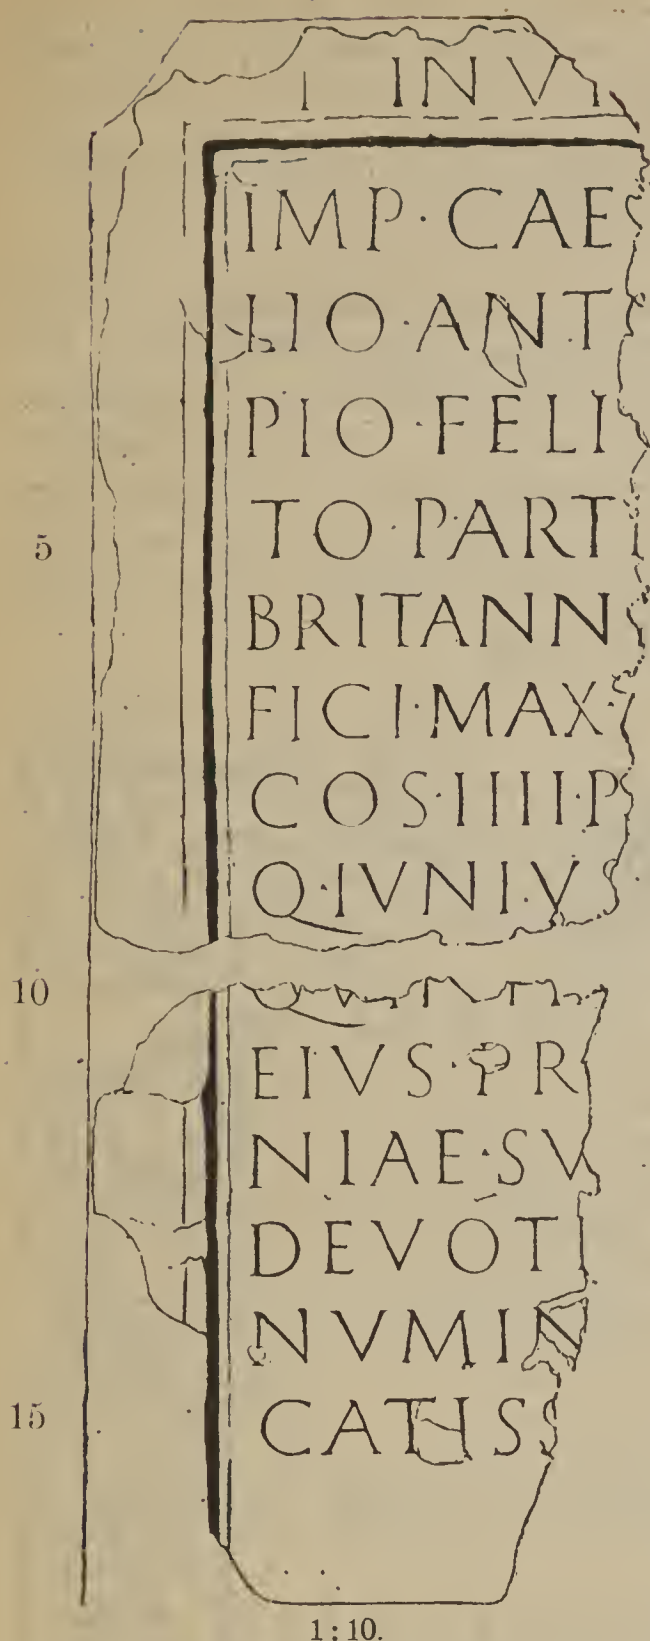 I INV
IMP·CAE
LIO·ANT
PIO·FELI
TO·PART
5
BRITANN
FICI·MAX·
COS·IIII·P
Q·IVNI·V
10
EIVS·PR
NIAE·SV
DEVOTI
NVMIN
15
CATIS
1:10.